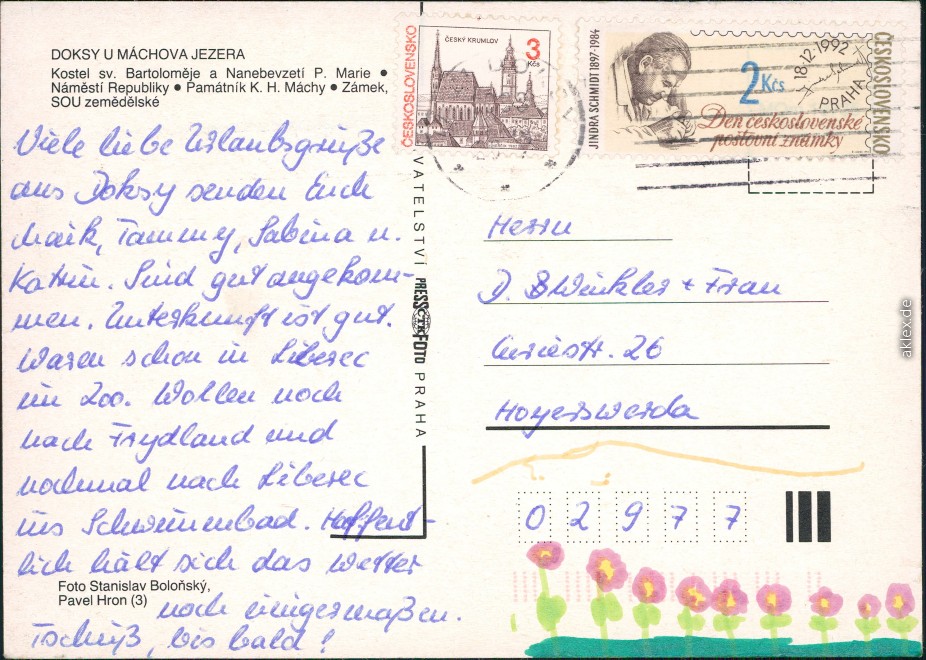 DOKSY U MÁCHOVA JEZERA
Kostel sv. Bartoloměje a Nanebevzetí P. Marie •
Náměstí Republiky • Památník K. H. Máchy • Zámek,
SOU zemědělské
Viele liebe Urlaubsgrüße
aus Doksy senden Euch
Maik, Tammy, Sabina u.
Katrin. Sind gut angekom-
men. Unterkunft ist gut.
Waren schon in Liberec
im Zoo. Wollen noch
nach Frydland und
nochmal nach Liberec
ins Schwimmbad. Hoffent-
lich hält sich das Wetter
noch einigermaßen.
Tschüß, bis bald!
Foto Stanislav Boloňský,
Pavel Hron (3)
VATELSTVÍ PRESSFOTO PRAHA
ČTK
ČESKOSLOVENSKO
ČESKÝ KRUMLOV
3
Kčs
JINDRA SCHMIDT 1897-1984
2 Kčs
18.12.1992
PRAHA
ČESKOSLOVENSKO
Den československé
poštovní známky
Herrn
D. Winkler + Frau
Curiestr. 26
Hoyerswerda
02977
aklex.de